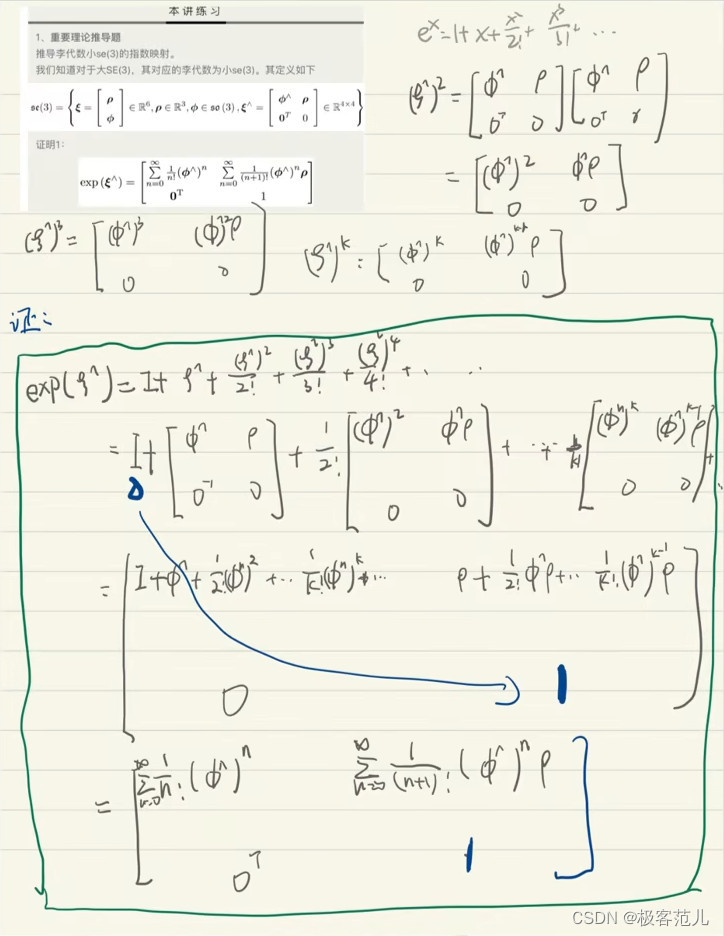 本讲练习
1、重要理论推导题
推导李代数小se(3)的指数映射。
我们知道对于大SE(3)，其对应的李代数为小se(3)。其定义如下
se(3) = { ξ = [ ρ ; ϕ ] ∈ ℝ⁶, ρ ∈ ℝ³, ϕ ∈ so(3), ξ^ = [ ϕ^ ρ ; 0ᵀ 0 ] ∈ ℝ⁴ˣ⁴ }
证明1：
exp(ξ^) = [ ∑_{n=0}^{∞} 1/n! (ϕ^)ⁿ   ∑_{n=0}^{∞} 1/(n+1)! (ϕ^)ⁿ ρ ; 0ᵀ   1 ]
eˣ = 1 + x + x²/2! + x³/3! ...
(ξ^)² = [ ϕ^ ρ ; 0ᵀ 0 ] [ ϕ^ ρ ; 0ᵀ 0 ]
= [ (ϕ^)² ϕ^ρ ; 0 0 ]
(ξ^)³ = [ (ϕ^)³ (ϕ^)²ρ ; 0 0 ]
(ξ^)ᵏ = [ (ϕ^)ᵏ (ϕ^)ᵏ⁻¹ρ ; 0 0 ]
证:
exp(ξ^) = I + ξ^ + (ξ^)²/2! + (ξ^)³/3! + (ξ^)⁴/4! + ...
= I + [ ϕ^ ρ ; 0ᵀ 0 ] + 1/2! [ (ϕ^)² ϕ^ρ ; 0 0 ] + ... + 1/k! [ (ϕ^)ᵏ (ϕ^)ᵏ⁻¹ρ ; 0 0 ] + ...
= [ I + ϕ^ + 1/2! (ϕ^)² + ... 1/k! (ϕ^)ᵏ + ...   ρ + 1/2! ϕ^ρ + ... 1/k! (ϕ^)ᵏ⁻¹ρ ; 0   1 ]
= [ ∑_{n=0}^{∞} 1/n! (ϕ^)ⁿ   ∑_{n=0}^{∞} 1/(n+1)! (ϕ^)ⁿ ρ ; 0ᵀ   1 ]
CSDN @极客范儿